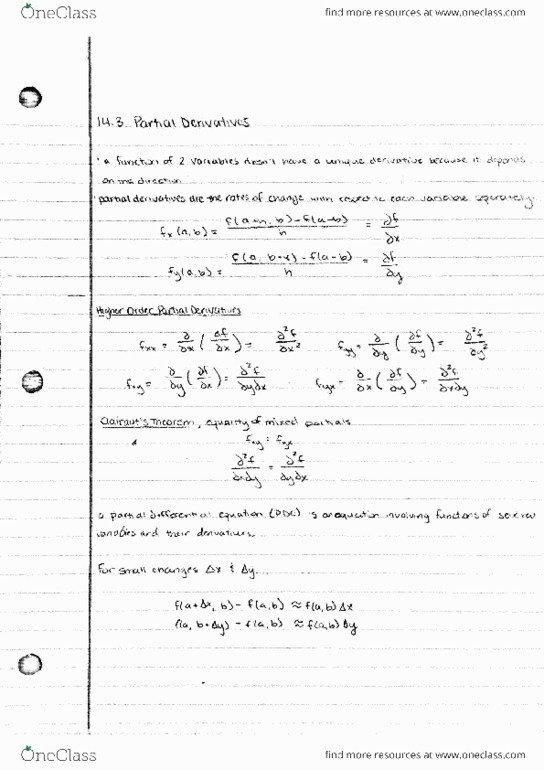 OneClass
find more resources at www.oneclass.com
14.3 Partial Derivatives
• a function of 2 variables doesn't have a unique derivative because it depends
on the direction
• partial derivatives are the rates of change with respect to each variable separately.
fx(a,b) = f(a+h, b) - f(a-b) / h = ∂f/∂x
fy(a,b) = f(a, b+k) - f(a-b) / h = ∂f/∂y
Higher Order Partial Derivatives
fxx = ∂/∂x (∂f/∂x) = ∂²f/∂x² fyy = ∂/∂y (∂f/∂y) = ∂²f/∂y²
fxy = ∂/∂y (∂f/∂x) = ∂²f/∂y∂x fyx = ∂/∂x (∂f/∂y) = ∂²f/∂x∂y
Clairaut's Theorem, equality of mixed partials
fxy = fyx
∂²f/∂x∂y = ∂²f/∂y∂x
a partial differential equation (PDE) is an equation involving functions of several
variables and their derivatives.
For small changes Δx & Δy...
f(a+Δx, b) - f(a,b) ≈ f(a,b) Δx
f(a, b+Δy) - f(a,b) ≈ f(a,b) Δy
OneClass
find more resources at www.oneclass.com